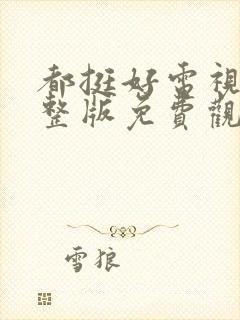 都挺好電視
整版免費觀
雪狼